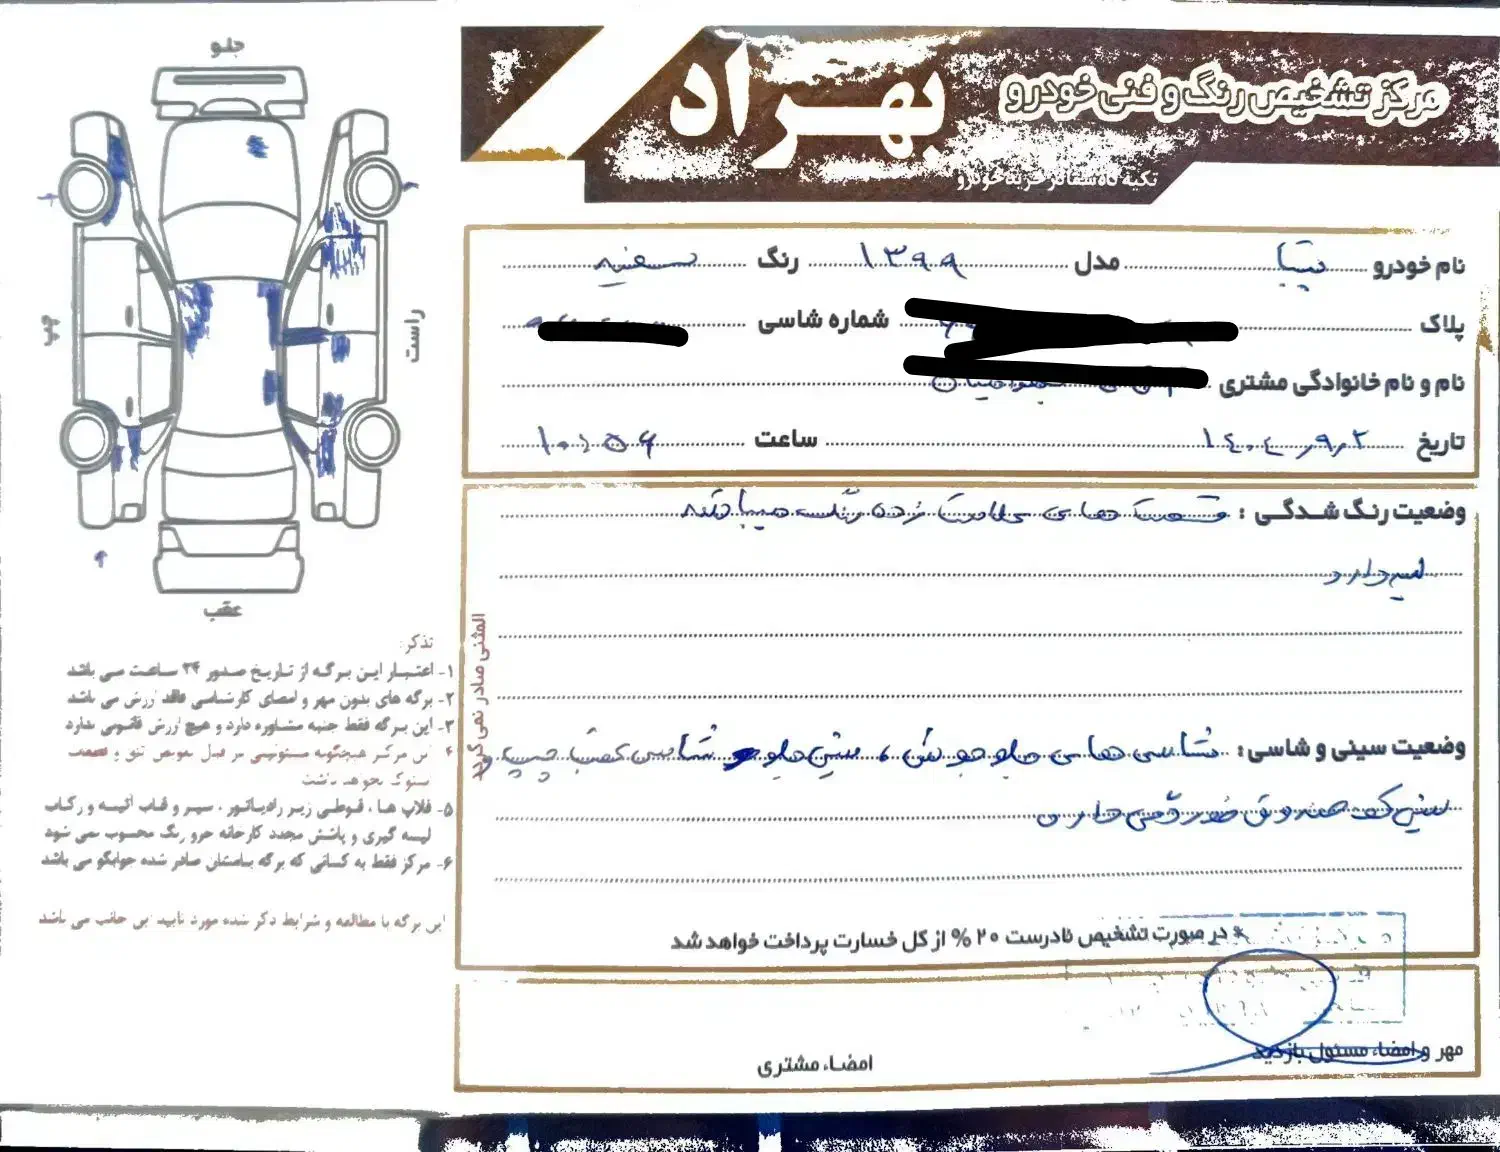 مرکز تشخیص رنگ و فنی خودرو
بهراد
تکیه گاه شما در خرید خودرو
نام خودرو تیبا مدل ۱۳۹۹ رنگ سفید
پلاک شماره شاسی
نام و نام خانوادگی مشتری
تاریخ ۱۴۰۴٫۹٫۲ ساعت ۱۰:۵۶
وضعیت رنگ شدگی : قسمت های علامت زده رنگ میباشد
لیسه دارد
وضعیت سینی و شاسی : شاسی های جلو جوش ، سینی جلو و شاسی عقب چپ و
سینی کف صندوق خوردگی دارد
* در صورت تشخیص نادرست ۲۰ % از کل خسارت پرداخت خواهد شد
مهر و امضاء مسئول بازدید
امضاء مشتری
المثنی صادر نمی گردد
جلو
چپ
راست
عقب
تذکر:
۱- اعتبار این برگه از تاریخ صدور ۲۴ ساعت می باشد
۲- برگه های بدون مهر و امضای کارشناسی فاقد ارزش می باشد
۳- این برگه فقط جنبه مشاوره دارد و هیچ ارزش قانونی ندارد
۴- این مرکز هیچگونه مسئولیتی در قبال تعویض و قطعات
نخواهد داشت
۵- قلاب ها ، قوطی زیر رادیاتور ، سپر و قاب آئینه و رکاب
لیسه گیری و پاشش مجدد کارخانه جزو رنگ محسوب نمی شود
۶- مرکز فقط به کسانی که برگه بنامشان صادر شده جوابگو می باشد
این برگه با مطالعه و شرایط ذکر شده مورد تایید اینجانب می باشد